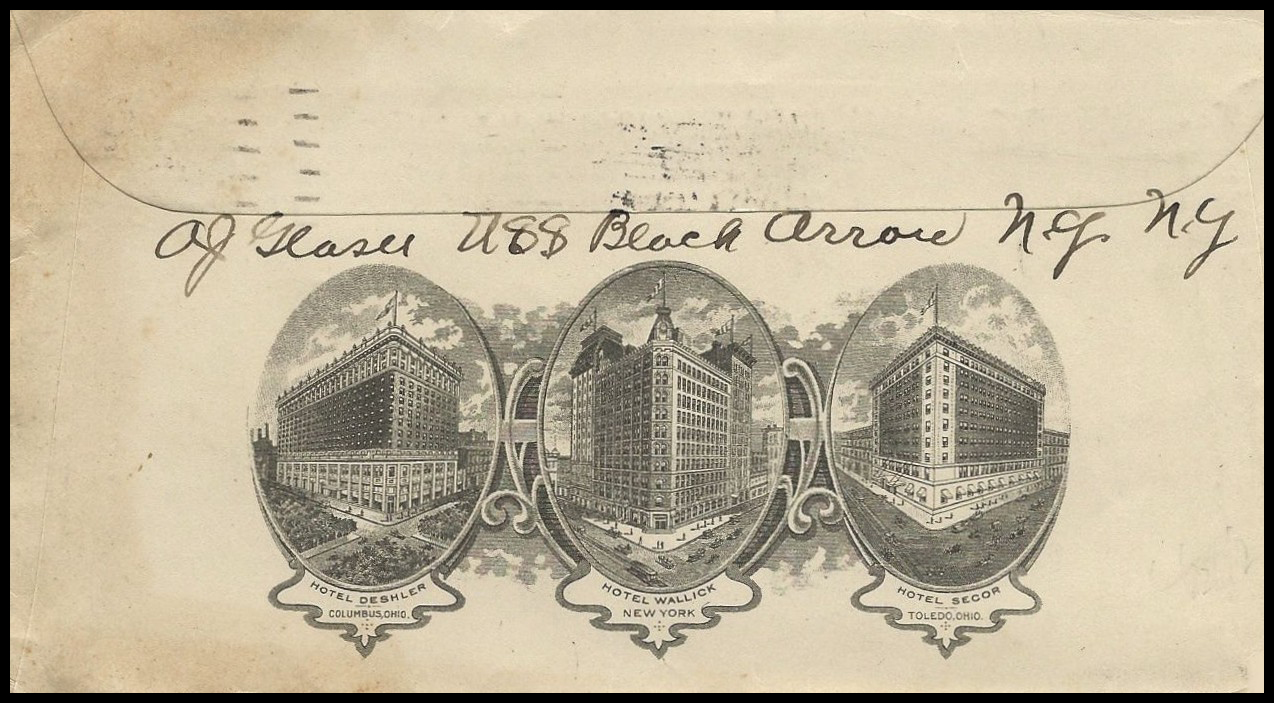 AJ Glaser USS Black Arrow N.Y. N.Y
HOTEL DESHLER
COLUMBUS, OHIO.
HOTEL WALLICK
NEW YORK
HOTEL SECOR
TOLEDO, OHIO.